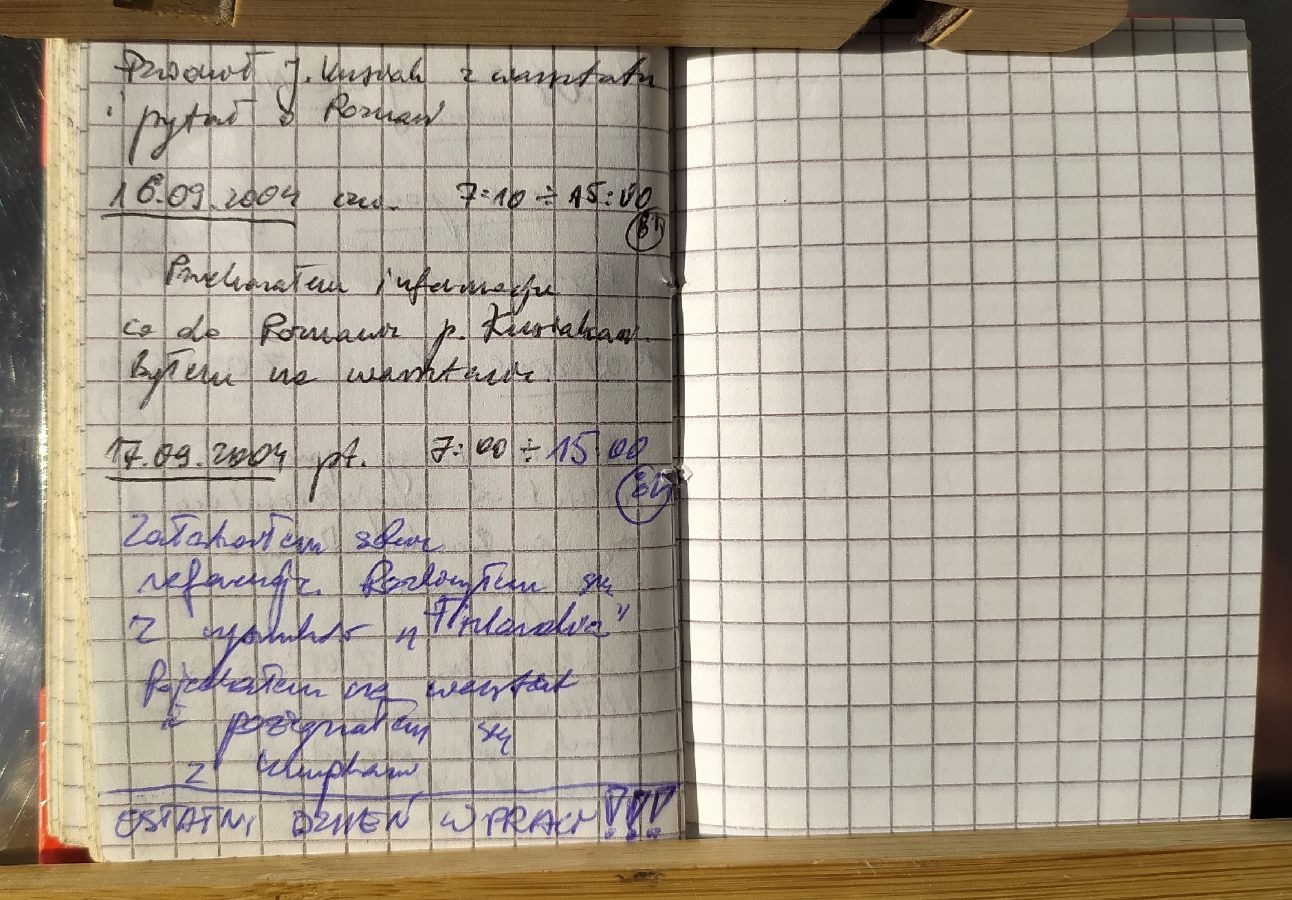 Dzwonił J. Kusiak z warsztatu
i pytał o Roznaw
16.09.2004 czw. 7:10 ÷ 15:00
8h
Przekazałem informacje
co do p. Kusiakowi.
Byłem na warsztacie.
17.09.2004 pt. 7:00 ÷ 15:00
8h
Załatwiłem sobie
referencje. Rozliczyłem się
z "Finlandia"
Pojechałem na warsztat
i pożegnałem się
z kumplami
OSTATNI DZIEŃ W PRACY!!!